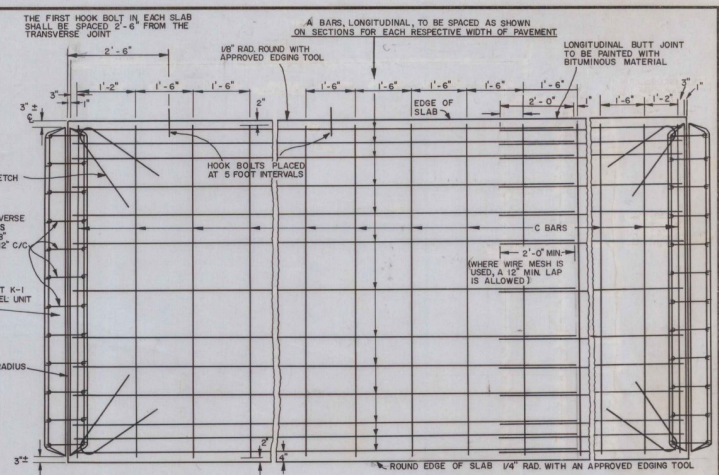 THE FIRST HOOK BOLT IN EACH SLAB
SHALL BE SPACED 2'-6" FROM THE
TRANSVERSE JOINT
A BARS, LONGITUDINAL, TO BE SPACED AS SHOWN
ON SECTIONS FOR EACH RESPECTIVE WIDTH OF PAVEMENT
2'-6"
1/8" RAD. ROUND WITH
APPROVED EDGING TOOL
LONGITUDINAL BUTT JOINT
TO BE PAINTED WITH
BITUMINOUS MATERIAL
3"
1'-2"
1'-6"
1'-6"
1'-6"
1'-6"
1'-6"
1'-6"
1'-6"
3"
1"
2'-0"
1"
1'-6"
1'-2"
1"
3"±
2"
EDGE OF
SLAB
HOOK BOLTS PLACED
AT 5 FOOT INTERVALS
ETCH
VERSE
12" C/C
C BARS
2'-0" MIN.
(WHERE WIRE MESH IS
USED, A 12" MIN. LAP
IS ALLOWED)
T K-1
EL UNIT
RADIUS
3"±
2"
4"
ROUND EDGE OF SLAB 1/4" RAD. WITH AN APPROVED EDGING TOOL